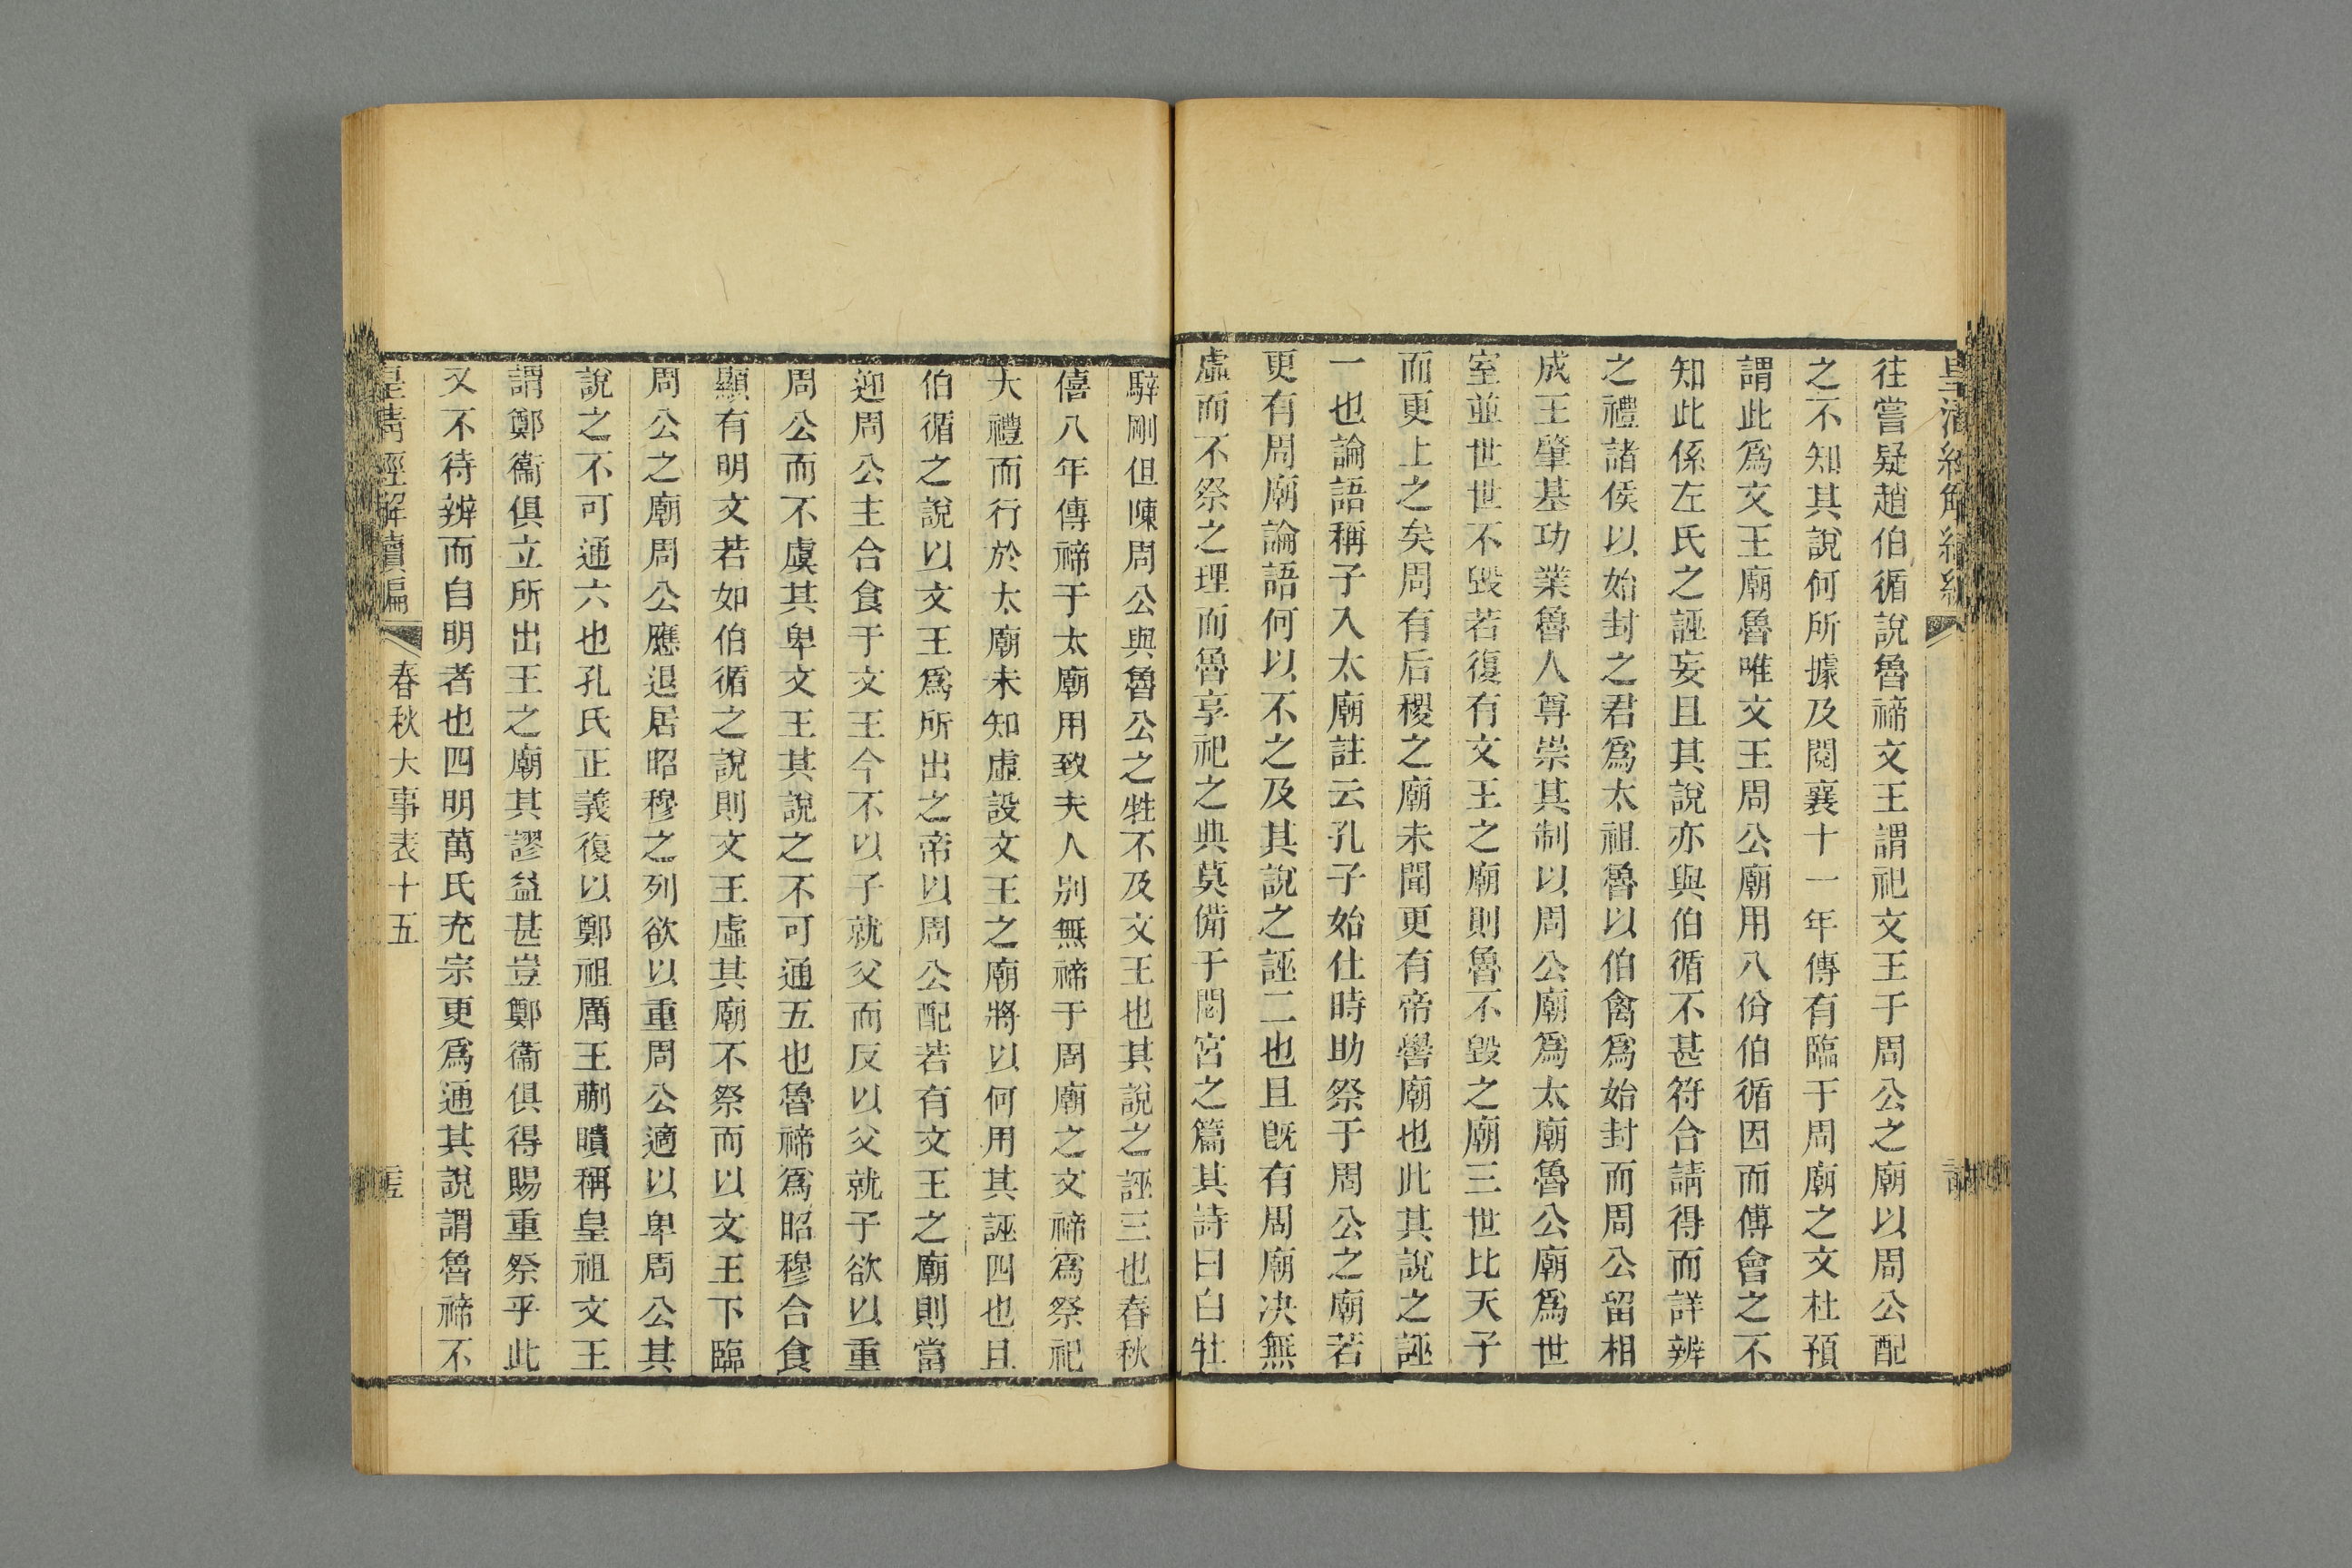 往嘗疑趙伯循說魯禘文王謂祀文王于周公之廟以周公配
之不知其說何所據及閱襄十一年傳有臨于周廟之文杜預
謂此爲文王廟魯唯文王周公廟用八佾伯循因而傅會之不
知此係左氏之誣妄且其說亦與伯循不甚符合請得而詳辨
之禮諸侯以始封之君爲太祖魯以伯禽爲始封而周公留相
成王肇基功業魯人尊崇其制以周公廟爲太廟魯公廟爲世
室並世世不毀若復有文王之廟則魯不毀之廟三世比天子
而更上之矣周有后稷之廟未聞更有帝嚳廟也此其說之誣
一也論語稱子入太廟註云孔子始仕時助祭于周公之廟若
更有周廟論語何以不之及其說之誣二也且旣有周廟决無
虛而不祭之理而魯享祀之典莫備于閟宮之篇其詩曰白牡
騂剛但陳周公與魯公之牲不及文王也其說之誣三也春秋
僖八年傳禘于太廟用致夫人别無禘于周廟之文禘爲祭祀
大禮而行於太廟未知虛設文王之廟將以何用其誣四也且
伯循之說以文王爲所出之帝以周公配若有文王之廟則當
迎周公主合食于文王今不以子就父而反以父就子欲以重
周公而不虞其卑文王其說之不可通五也魯禘爲昭穆合食
顯有明文若如伯循之說則文王虛其廟不祭而以文王下臨
周公之廟周公應退居昭穆之列欲以重周公適以卑周公其
說之不可通六也孔氏正義復以鄭祖厲王蒯聵稱皇祖文王
謂鄭衞俱立所出王之廟其謬益甚豈鄭衞俱得賜重祭乎此
又不待辨而自明者也四明萬氏充宗更爲通其說謂魯禘不
皇清經解續編
春秋大事表十五